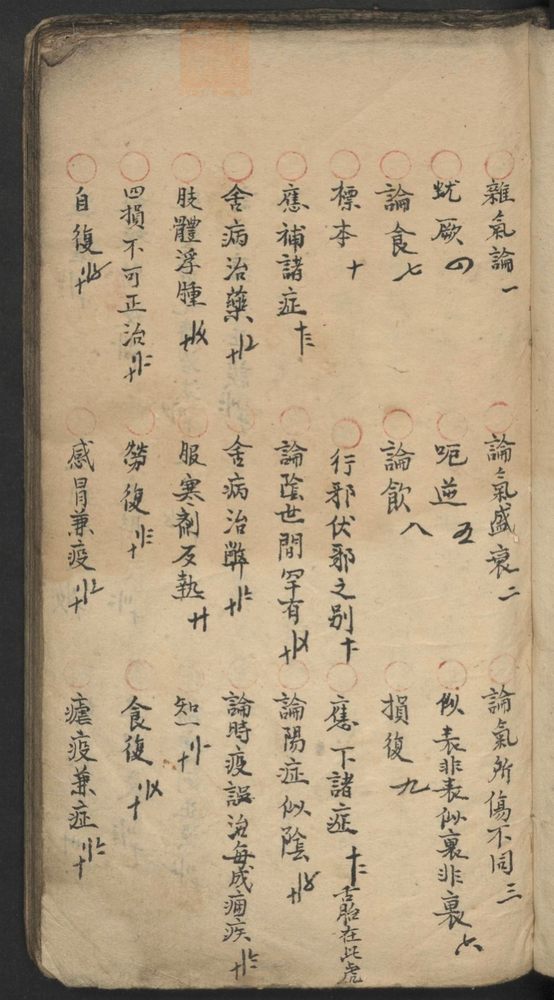 雜氣論一
論氣盛衰二
論氣所傷不同三
蚘厥四
呃逆五
似表非表似裏非裏六
論食七
論飲八
損復九
標本十
行邪伏邪之别十一
應下諸症十二 舌胎在此處
應補諸症十三
論陰世間罕有
論陽症似陰
舍病治藥
舍病治弊
論時疫誤治每成痼疾
肢體浮腫
服寒劑反熱廿
知一
四損不可正治
勞復
食復
自復
感冒兼疫
瘧疫兼症